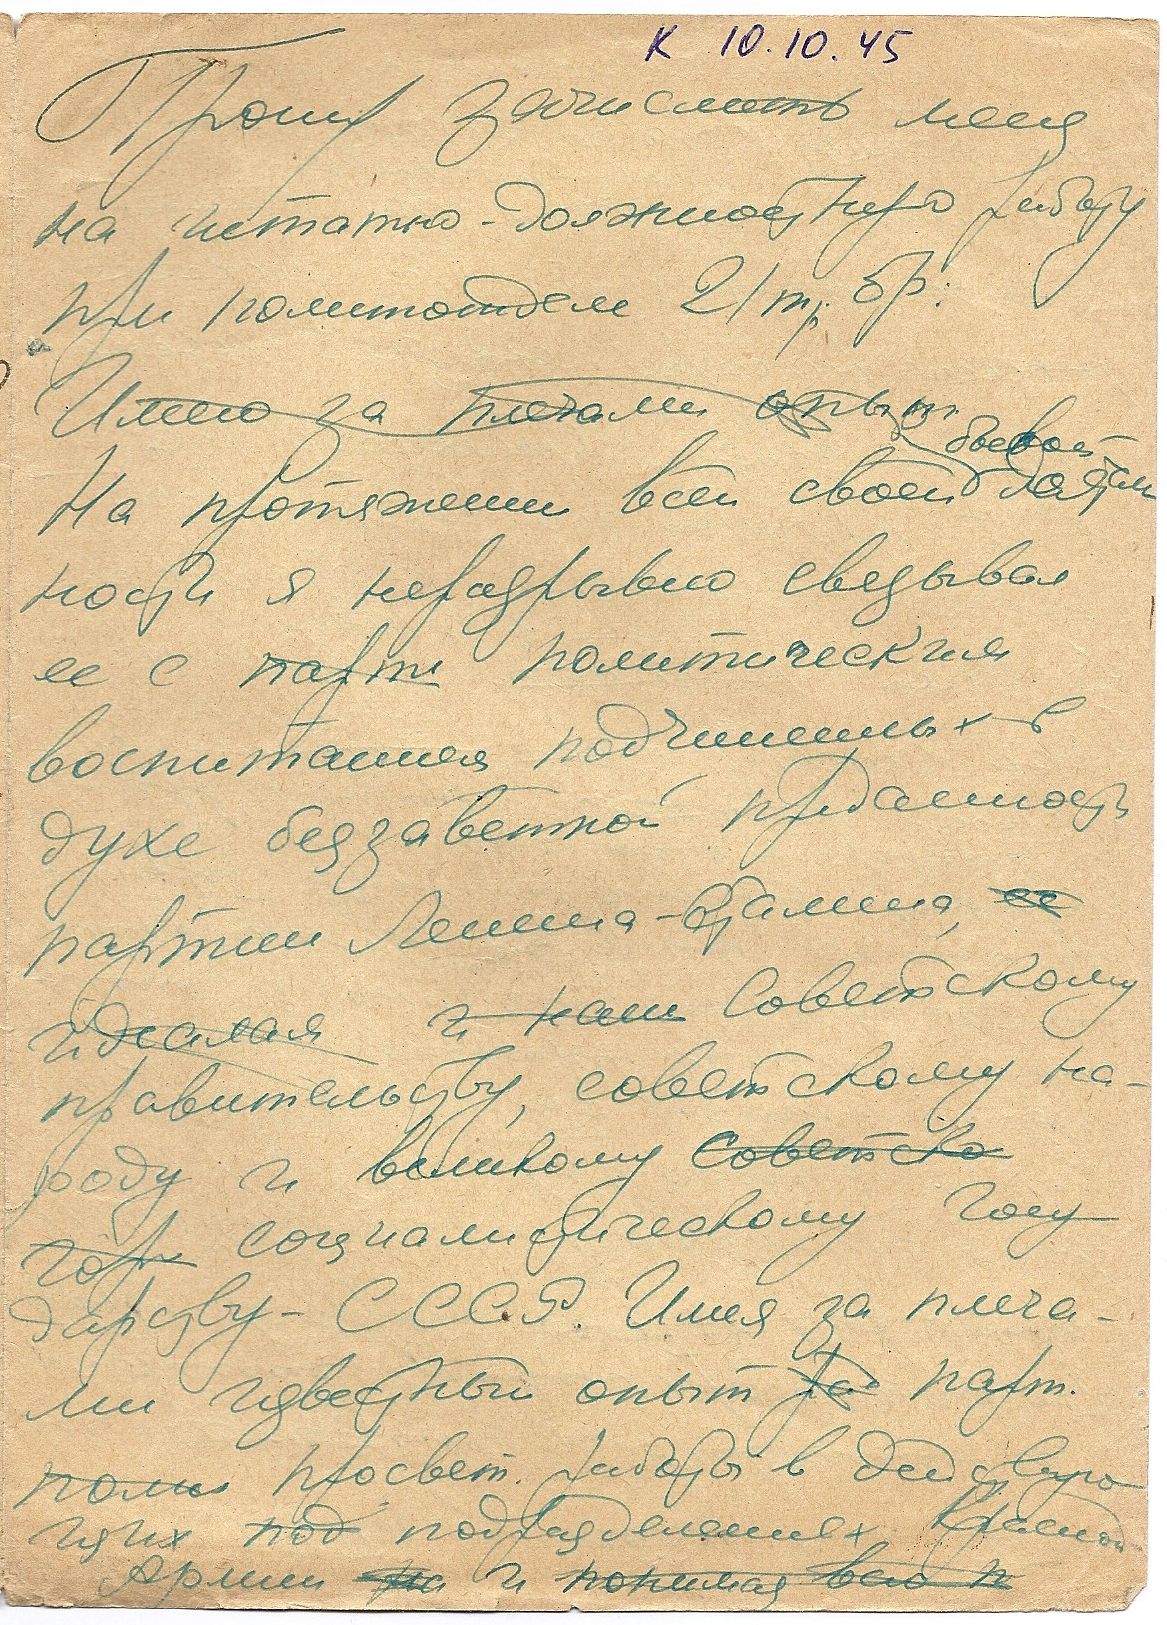 К 10.10.45
Прошу зачислить меня
на штатно-должностную работу
при политотделе 21 тр. бр.
Имею за плечами опыт
боевой
На протяжении всей своей деятель
ности я неразрывно связывал
ее с парти политическия
воспитания подчиненных в
духе беззаветной преданности
партии Ленина-Сталина, ее
идеалая и наш Советскому
правительству, советскому на-
роду и великому Советско
гор социалистическому госу
дарству - СССР. Имея за плеча-
ми известный опыт парт.
полит просвет. работы в действую
щих под подразделениях Красной
Армии на и понимая всю п